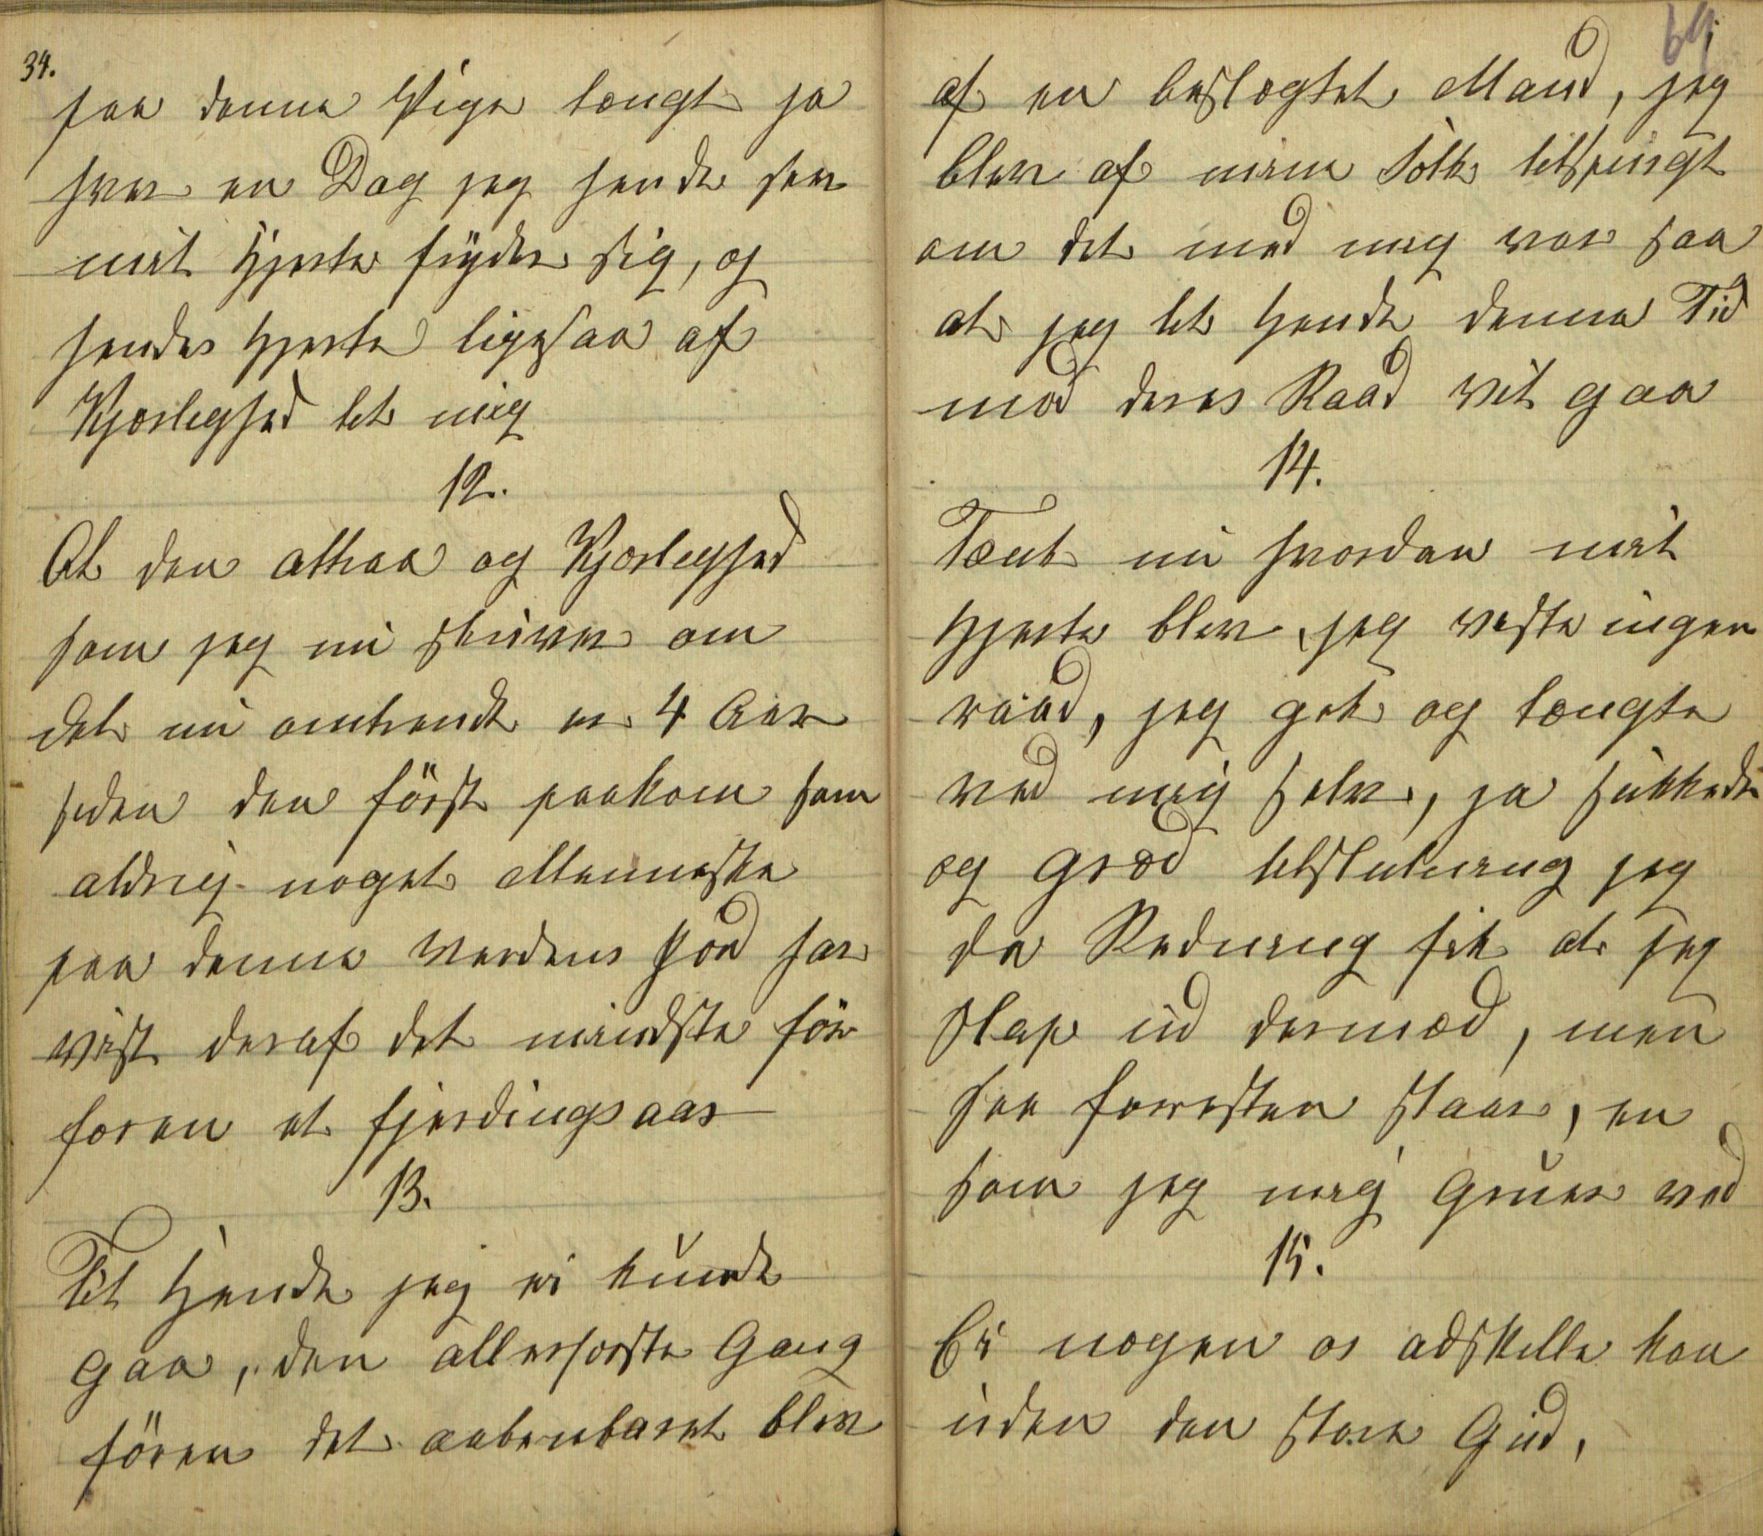 34.
saa denne Pige længt ja
hver en Dag jeg hende ser
mit Hjerte fryder sig, og
hendes Hjerte ligesaa af
Kjærleghed tel mig
12.
At den attraa og Kjærleghed
som jeg nu skriver om
det nu omtrendt er 4 Aar
siden den först paakom som
aldrig noget Menneske
paa denne Verdens Jord har
vist deraf det mindste för
foren et fjerdingsaar
13.
Tel Hende jeg ei kunde
gaa, den allerforste Gang
fören det aabenbaret blev
64
af en beslægtet Mand, jeg
blev af mine Folk telspurgt
om det med meg var saa
at jeg tel Hende denne Tid
mod deres Raad vil gaa
14.
Tænk nu hvordan mit
Hjerte blev, jeg veste ingen
raad, jeg gek og længte
ved mig selv, ja sukkede
og græd telslutning jeg
da Redning fik at jeg
slap ud dermed, men
saa forresten staar, en
som jeg meg Gruer ved
15.
Ei nogen os adskille kan
uden den store Gud,